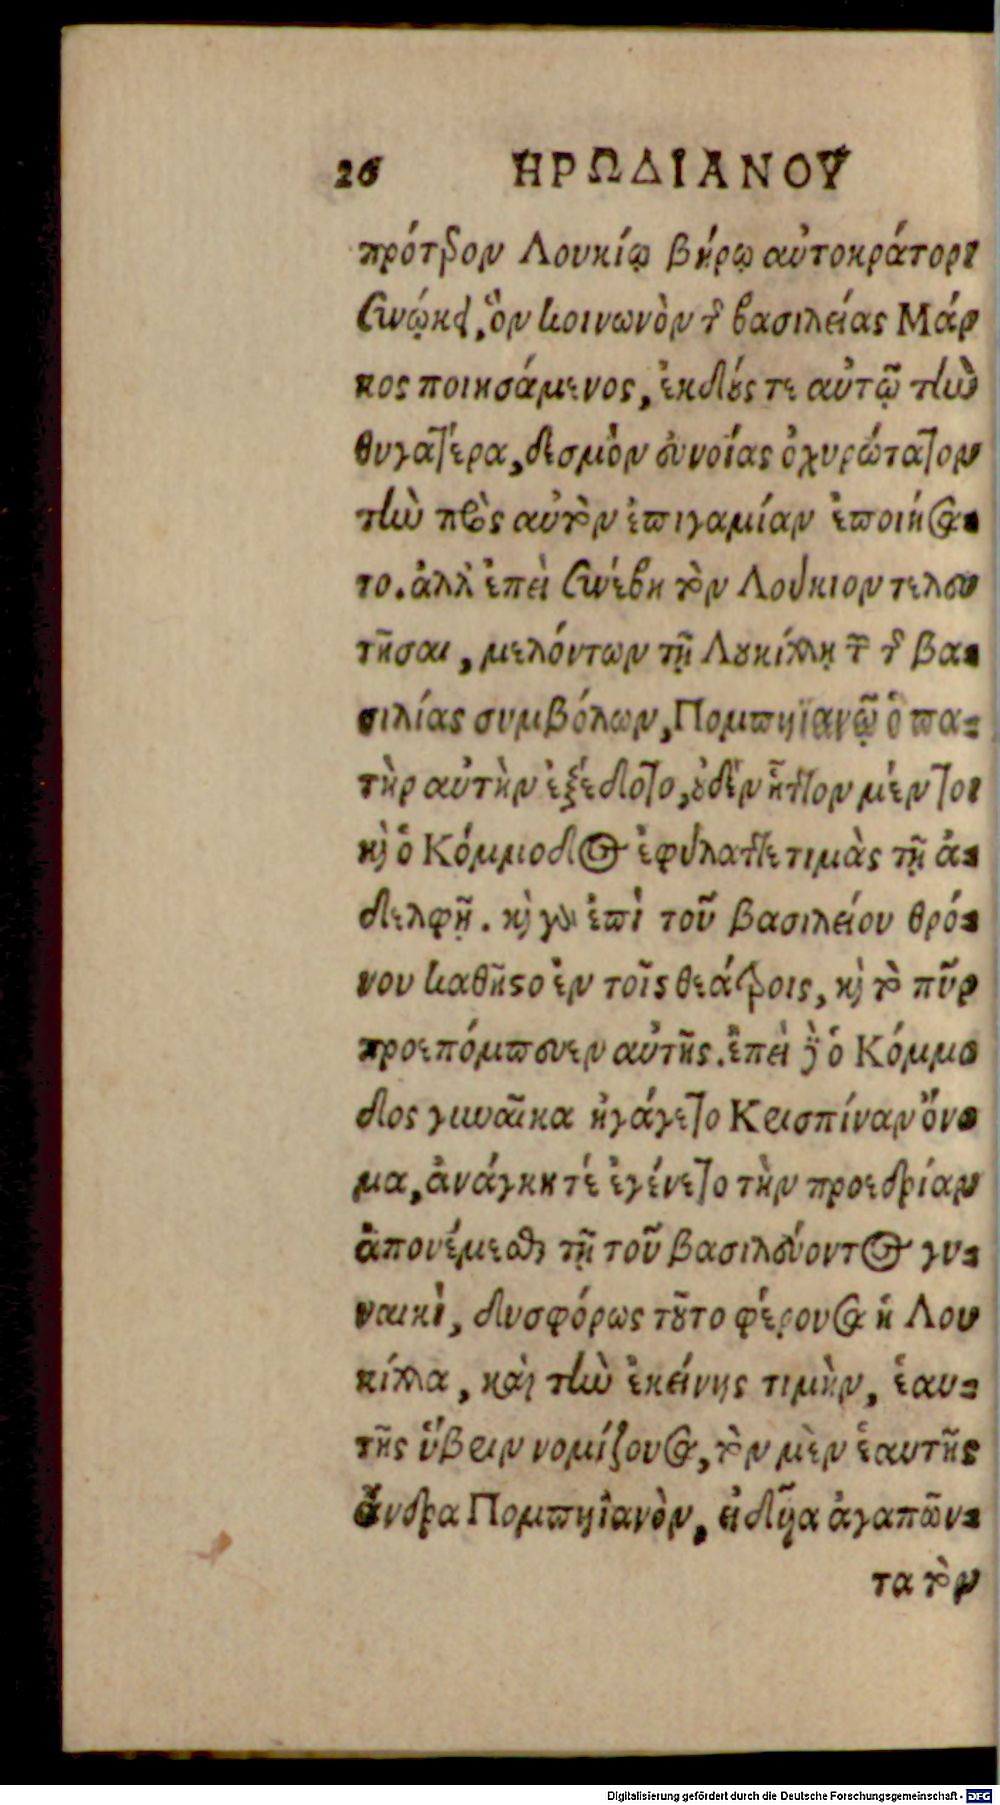 26 ἩΡΩΔΙΑΝΟΥ
πρότερον Λουκίῳ βήρῳ αὐτοκράτορι
συνῴκει, ὃν κοινωνὸν τῆς βασιλείας Μάρ
κος ποιησάμενος, ἐκδούς τε αὐτῷ τὴν
θυγατέρα, δεσμὸν εὐνοίας ὀχυρώτατον
τὴν πρὸς αὐτὸν ἐπιγαμίαν ἐποιήσα-
το. ἀλλ' ἐπεὶ συνέβη τὸν Λούκιον τελευ
τῆσαι, μελόντων τῇ Λουκίλλῃ τῶν τῆς βα-
σιλίας συμβόλων, Πομπηϊανῷ ὁ πα-
τὴρ αὐτὴν ἐξέδοτο, οὐδὲν ἧττον μέντοι
καὶ ὁ Κόμμοδος ἐφύλαττε τιμὰς τῇ ἀ-
δελφῇ. καὶ γὰρ ἐπὶ τοῦ βασιλείου θρό-
νου καθῆστο ἐν τοῖς θεάτροις, καὶ τὸ πῦρ
προεπόμπευεν αὐτῆς. ἐπεὶ δὲ ὁ Κόμμο
δος γυναῖκα ἠγάγετο Κρισπίναν ὄνο
μα, ἀνάγκη τέ ἐγένετο τὴν προεδρίαν
ἀπονέμεσθαι τῇ τοῦ βασιλεύοντος γυ-
ναικὶ, δυσφόρως τοῦτο φέρουσα ἡ Λου
κίλλα, καὶ τὴν ἐκείνης τιμὴν, ἑαυ-
τῆς ὕβριν νομίζουσα, τὸν μὲν ἑαυτῆς
ἄνδρα Πομπηϊανὸν, εἰδῆα ἀγαπῶν-
τα τὸν
Digitalisierung gefördert durch die Deutsche Forschungsgemeinschaft - DFG